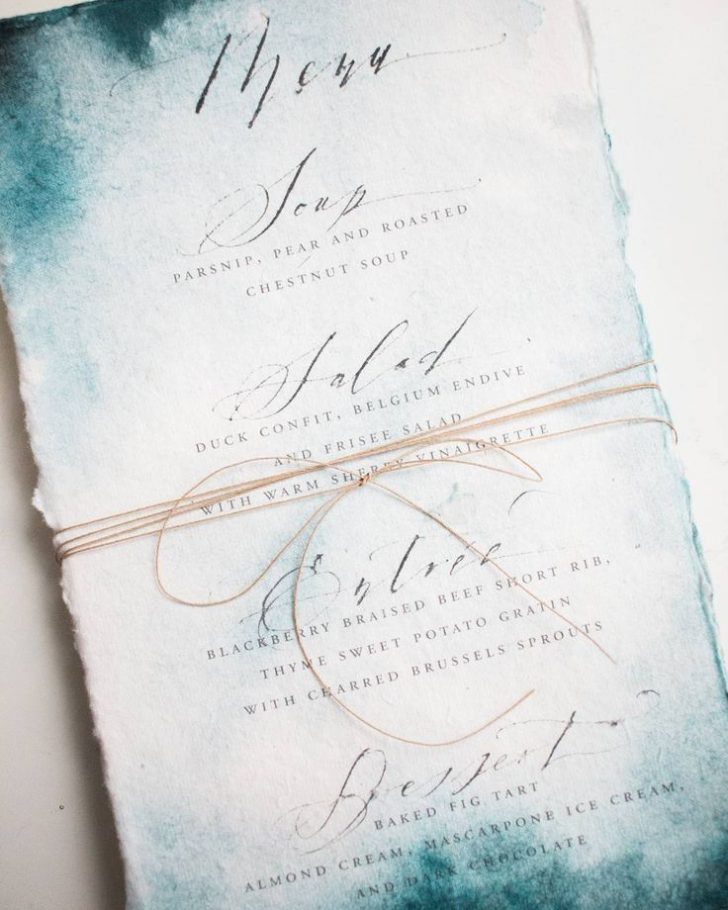 Menu
Soup
PARSNIP, PEAR AND ROASTED
CHESTNUT SOUP
Salad
DUCK CONFIT, BELGIUM ENDIVE
AND FRISEE SALAD
WITH WARM SHERRY VINAIGRETTE
Entrée
BLACKBERRY BRAISED BEEF SHORT RIB,
THYME SWEET POTATO GRATIN
WITH CHARRED BRUSSELS SPROUTS
Dessert
BAKED FIG TART
ALMOND CREAM, MASCARPONE ICE CREAM,
AND DARK CHOCOLATE